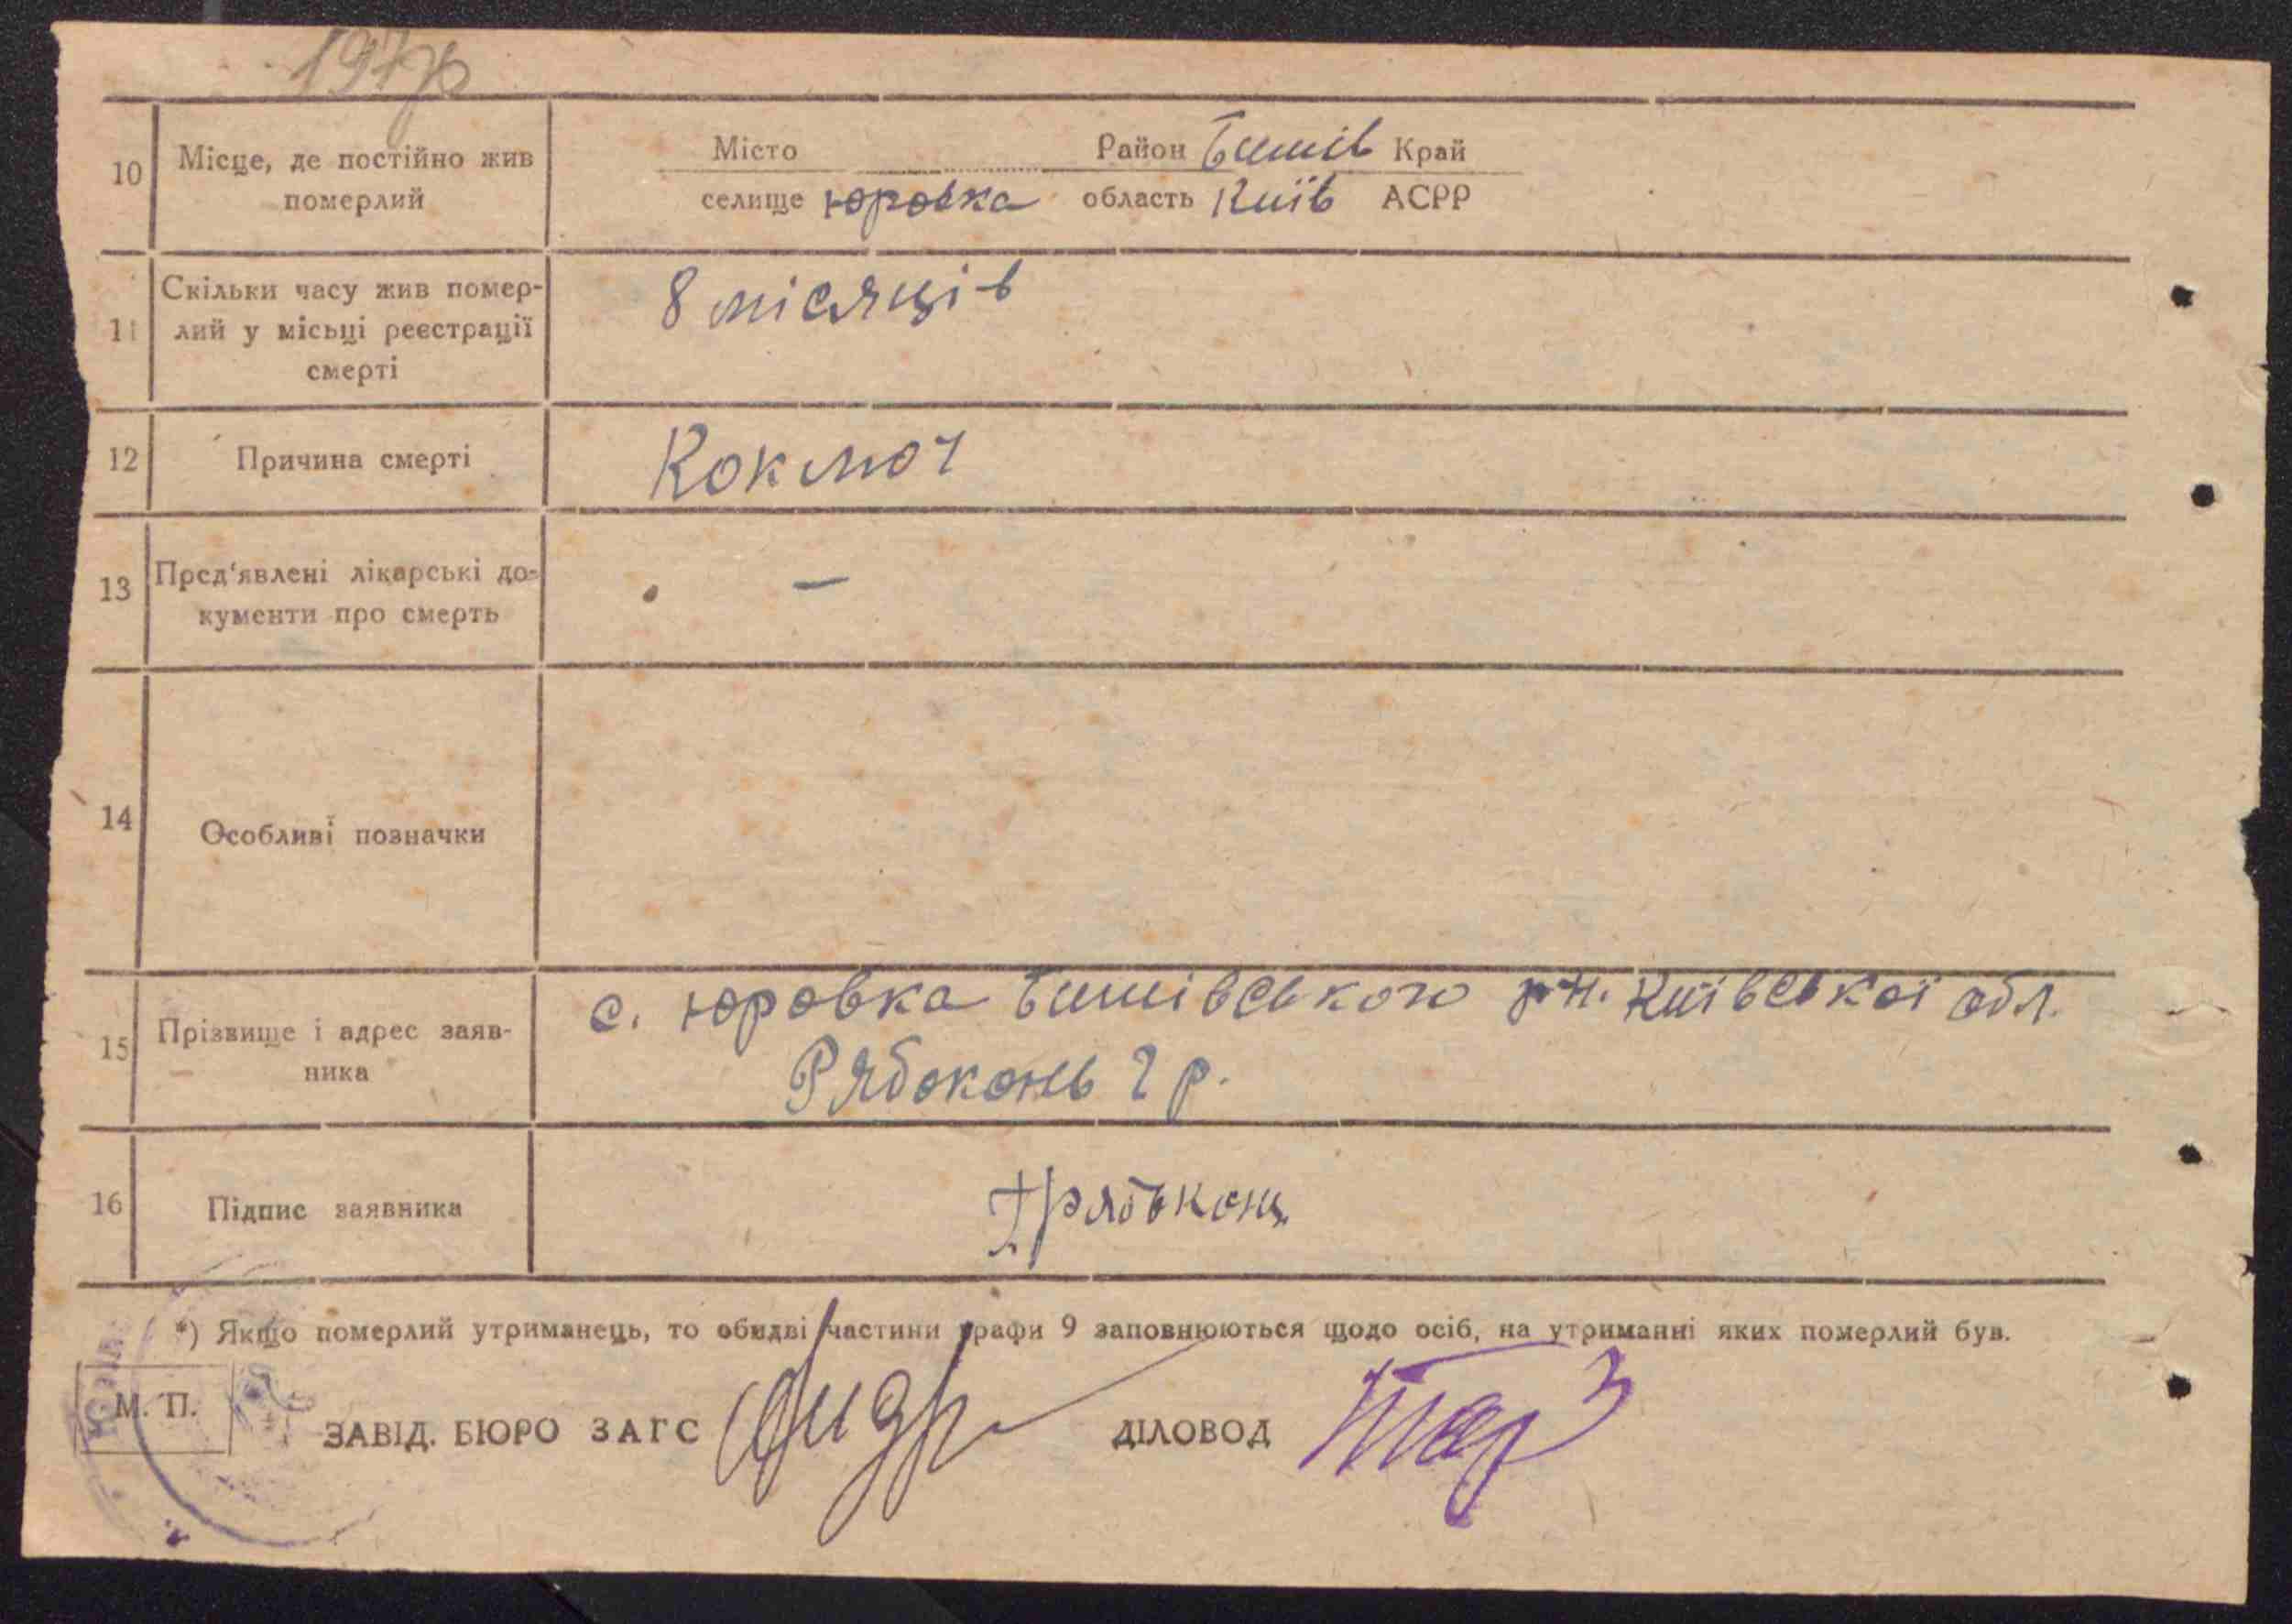 10 Місце, де постійно жив померлий
Місто Район Бишів Край
селище юровка область Київ АСРР
11 Скільки часу жив помер-
лий у місьці реєстрації
смерті
8 місяців
12 Причина смерті Коключ
13 Пред'явлені лікарські до-
кументи про смерть
–
14 Особливі позначки
15 Прізвище і адрес заяв-
ника
с. юровка Бишівського р-н. Київської обл.
Рябоконь г р.
16 Підпис заявника
*) Якщо померлий утриманець, то обидві частини графи 9 заповнюються щодо осіб, на утриманні яких померлий був.
М. П.
ЗАВІД. БЮРО ЗАГС ДІЛОВОД